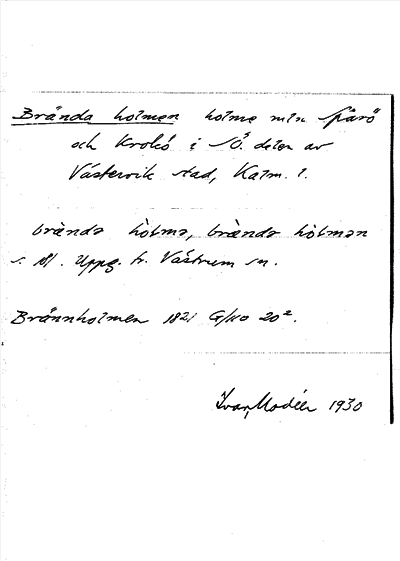 Brända holmen holme mln Spårö
och Krokö i SÖ. delen av
Västervik stad, Kalm. l.
brända hòlmə, brända hòlmən
s. Bl. Uppg. fr. Västrum sn.
Brännholmen 1821 G/110 20².
Ivar Modéer 1930